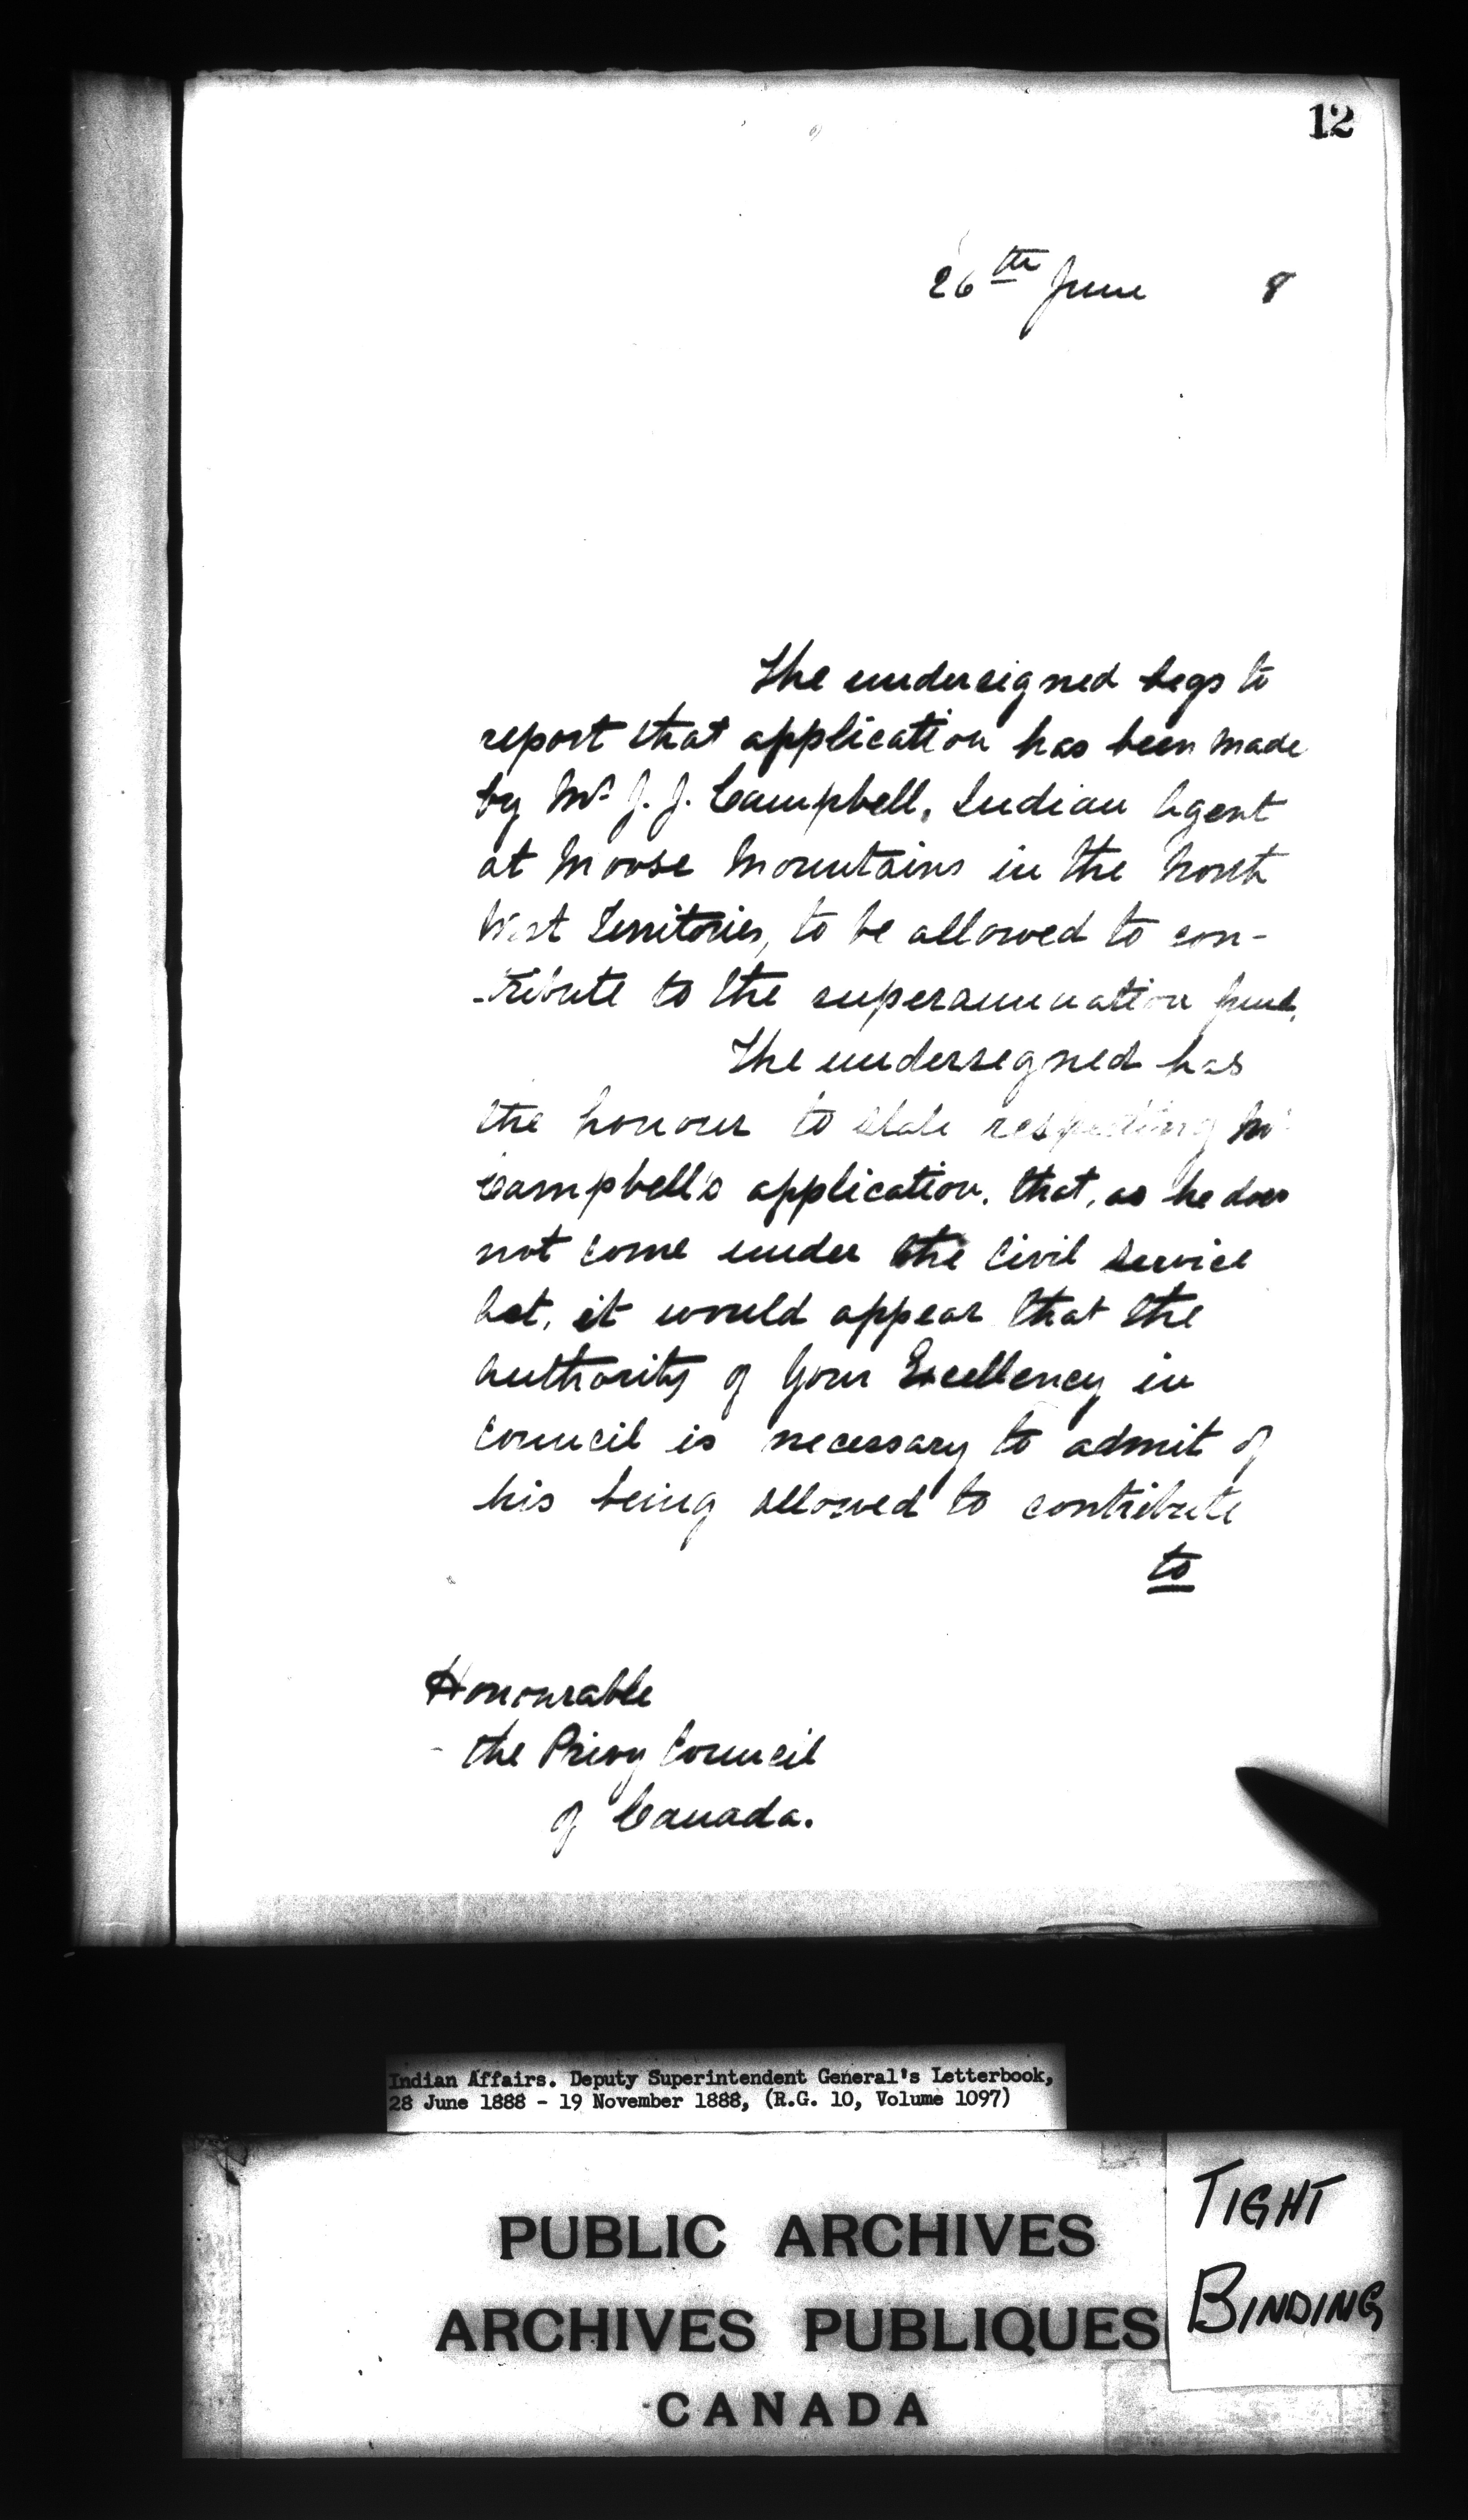 12
26th June 8
The undersigned begs to
report that application has been made
by Mr J. J. Campbell, Indian Agent
at Moose Mountains in the North
West Territories, to be allowed to con-
-tribute to the superannuation fund.
The undersigned has
the honour to state respecting Mr
Campbell's application, that, as he does
not come under the Civil Service
Act, it would appear that the
authority of Your Excellency in
Council is necessary to admit of
his being allowed to contribute
to
Honourable
- the Privy Council
of Canada.
Indian Affairs. Deputy Superintendent General's Letterbook,
28 June 1888 - 19 November 1888, (R.G. 10, Volume 1097)
PUBLIC ARCHIVES
ARCHIVES PUBLIQUES
CANADA
TIGHT
BINDING